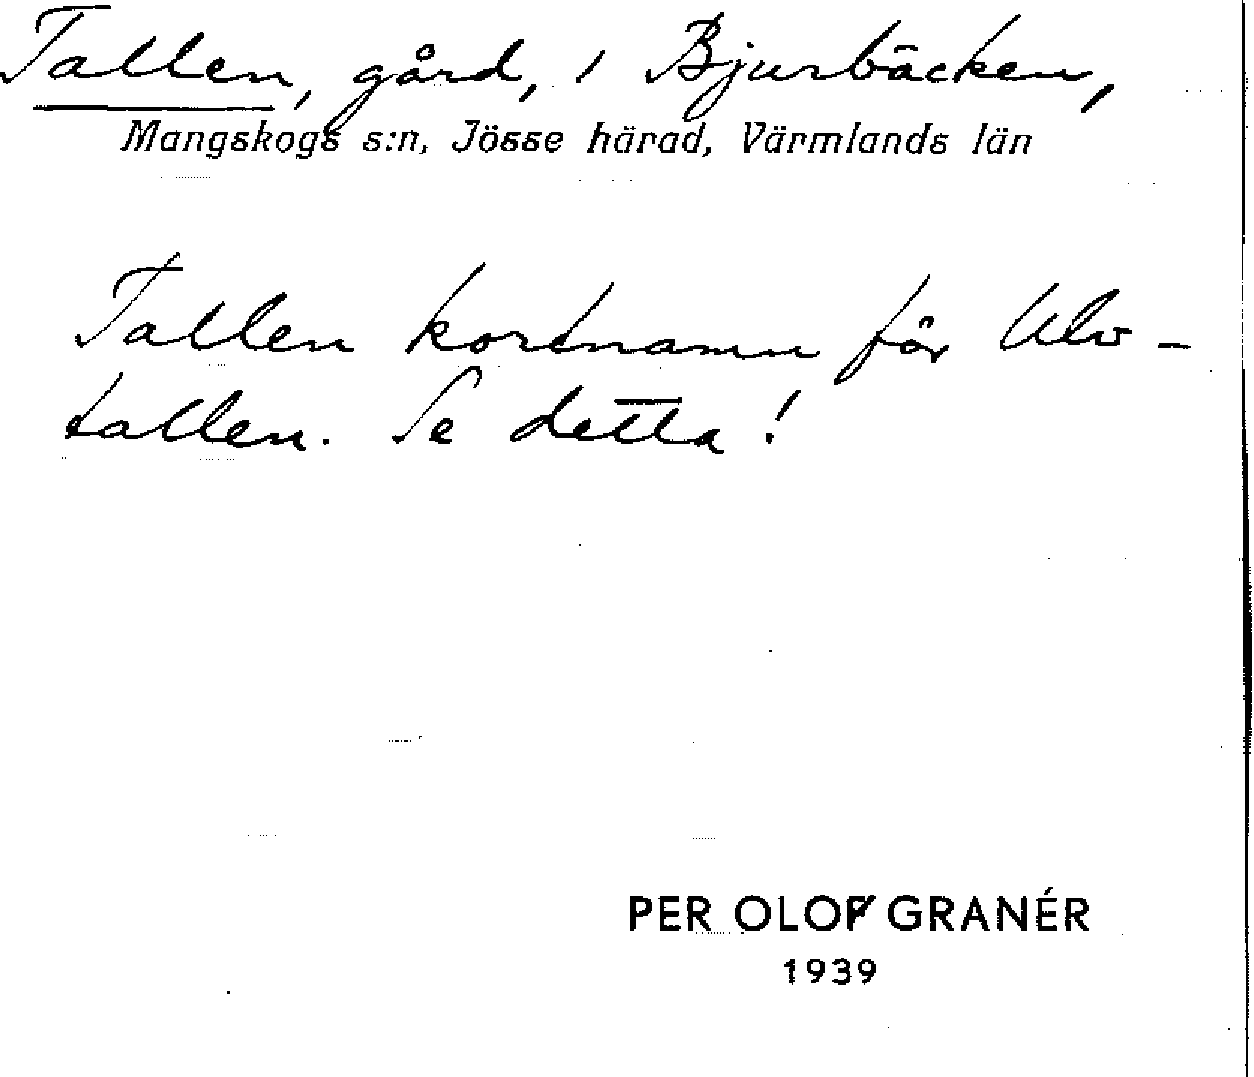 Tallen, gård, i Bjurbäcken,
Mangskogs s:n, Jösse härad, Värmlands län
Tallen kortnamn för Ulv-
tallen. Se detta!
PER OLOF GRANÉR
1939